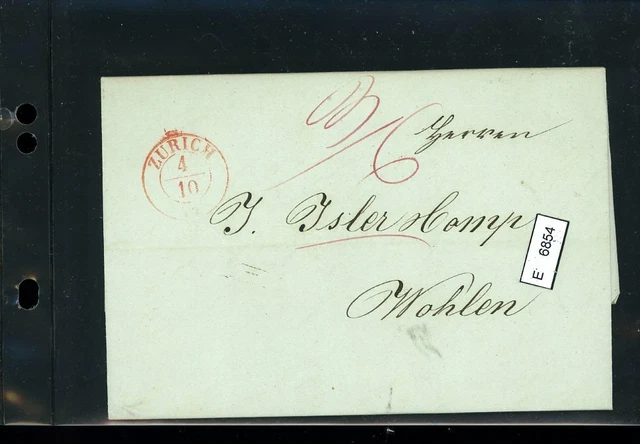 ZURICH
4
10
Herren
J. Isler & Comp
Wohlen
E 6854